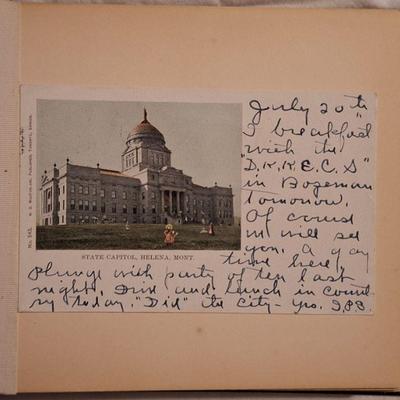 July 20th
I breakfast
with the
"D.K.K.E.C.S"
in Bozeman
tomorrow.
Of course
we will see
you. A gay
time here
Plunge with party of ten last
night, Dine and lunch in count
ry today. "Did" the city - Yrs.
No. 543.
STATE CAPITOL, HELENA, MONT.